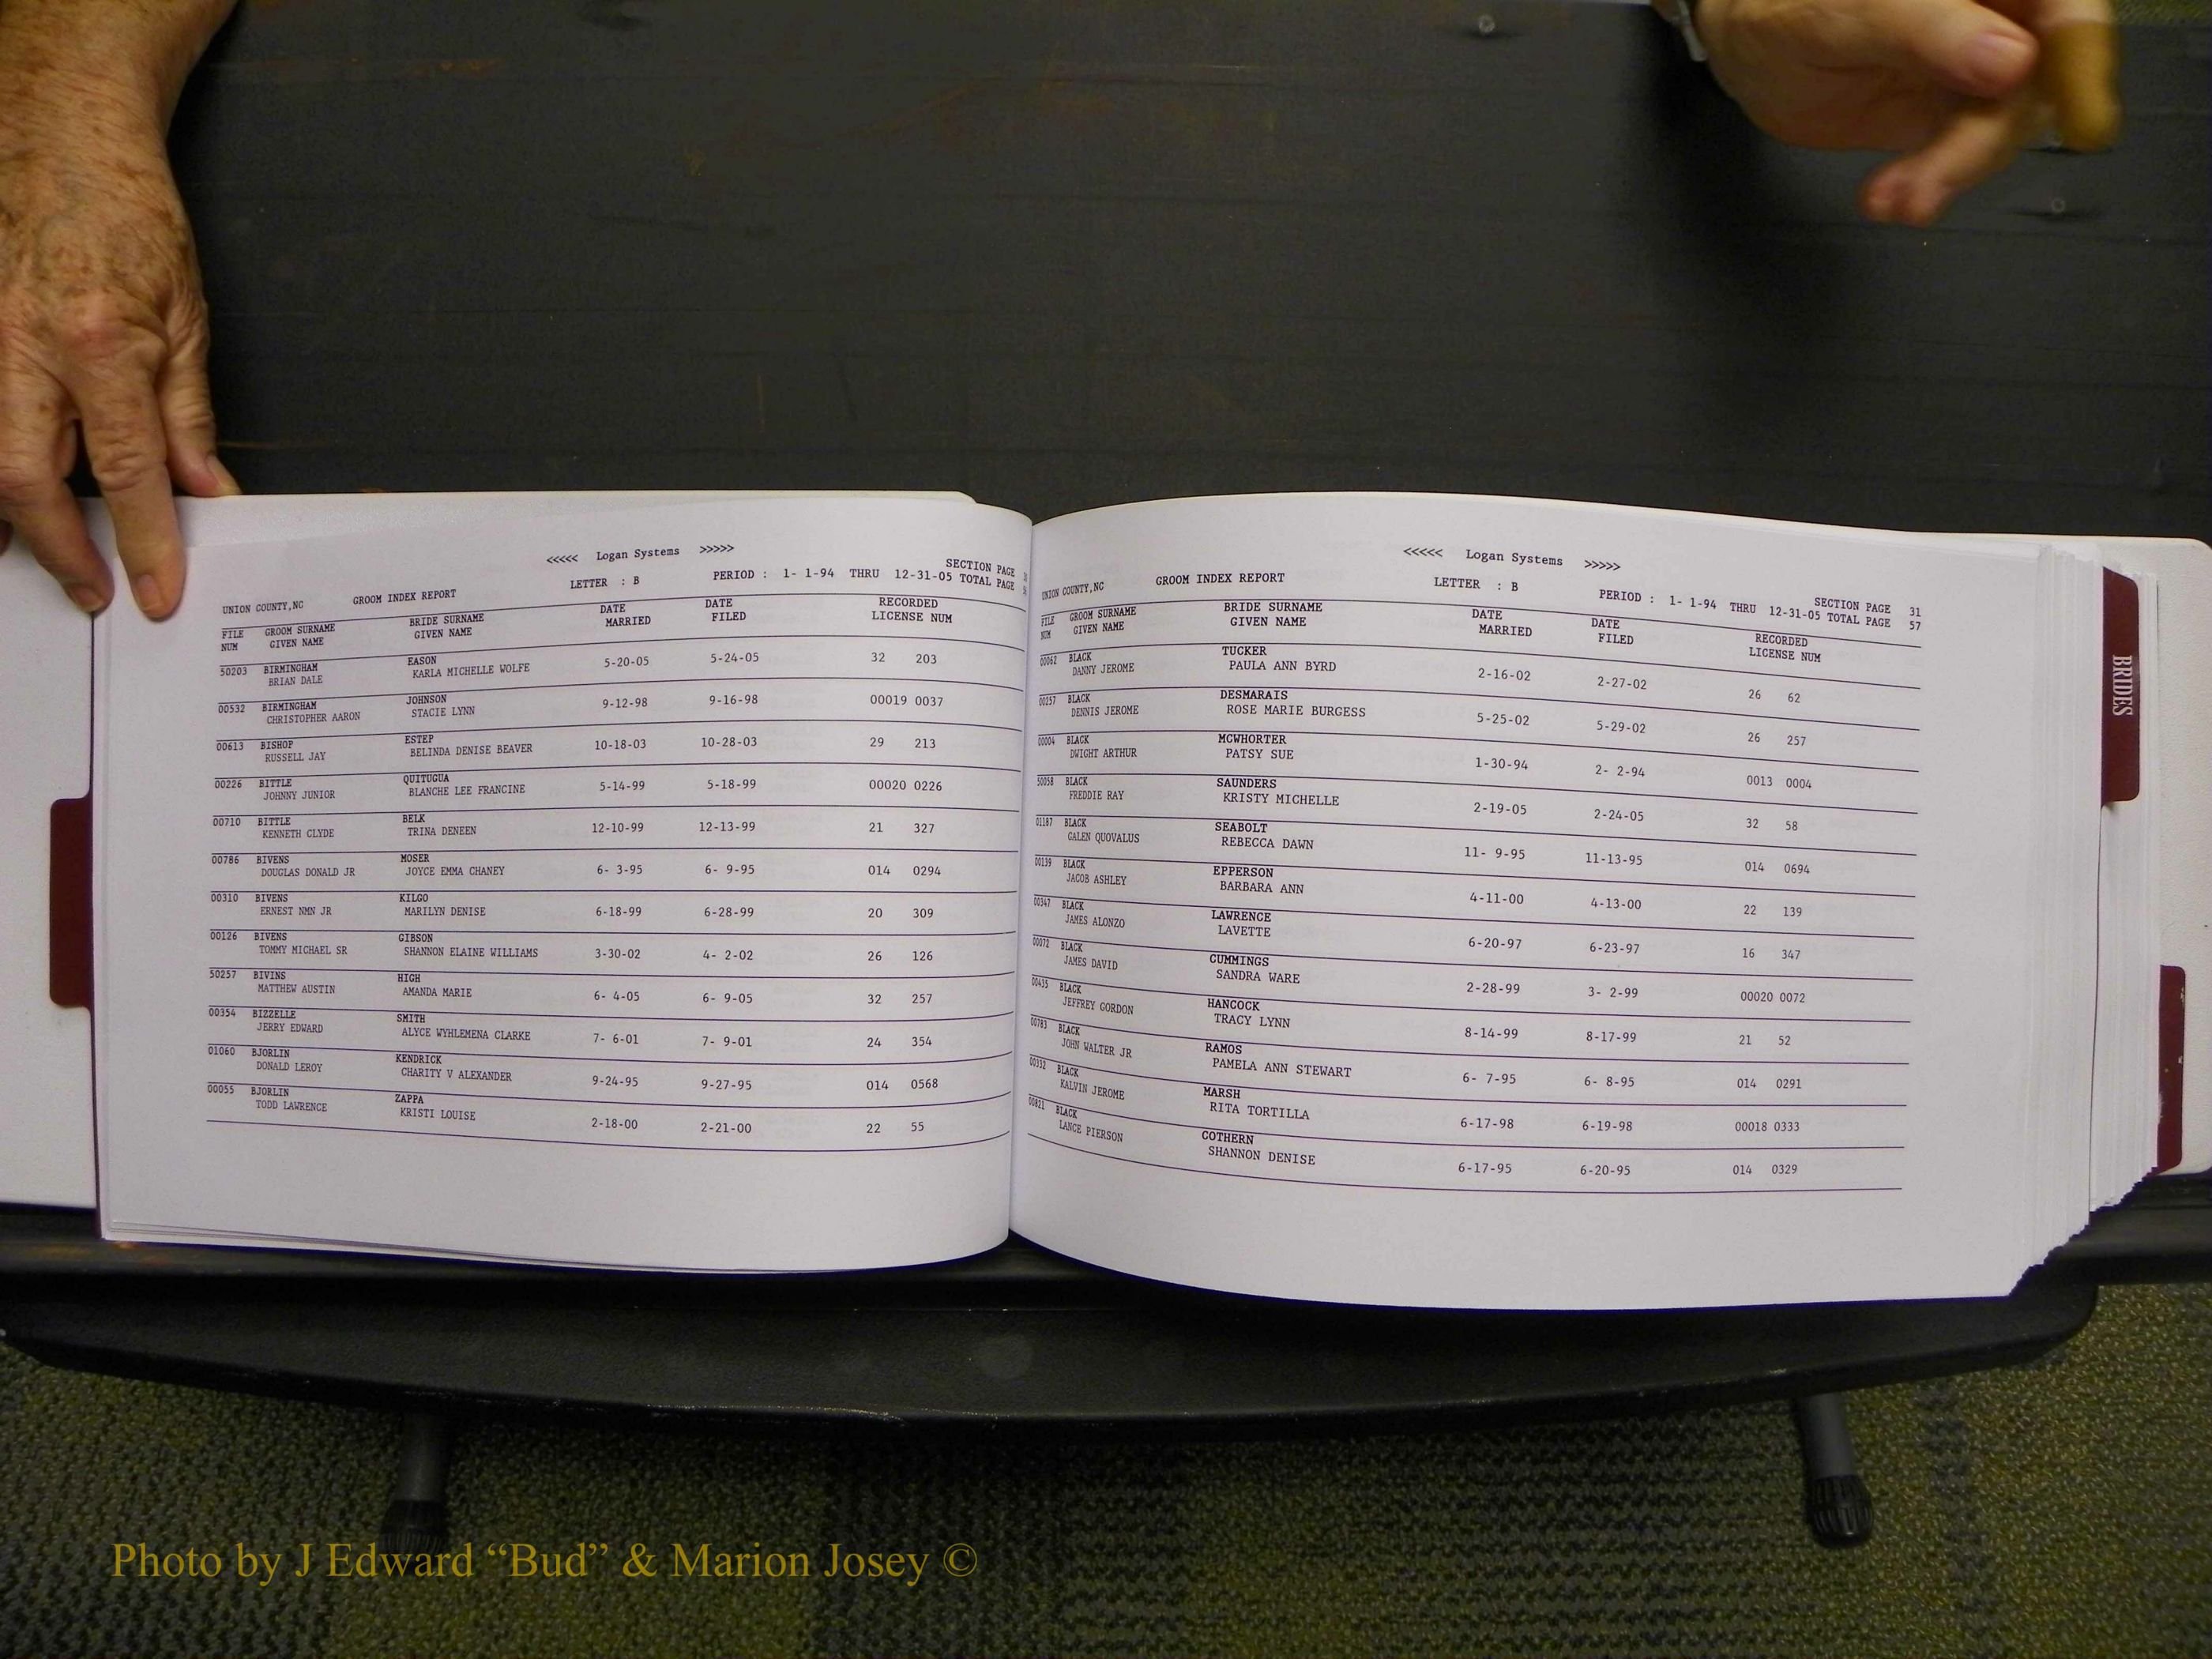 <<<<< Logan Systems >>>>>
UNION COUNTY,NC GROOM INDEX REPORT LETTER : B PERIOD : 1- 1-94 THRU 12-31-05 SECTION PAGE
TOTAL PAGE
FILE GROOM SURNAME BRIDE SURNAME DATE DATE RECORDED
NUM GIVEN NAME GIVEN NAME MARRIED FILED LICENSE NUM
50203 BIRMINGHAM EASON 5-20-05 5-24-05 32 203
BRIAN DALE KARLA MICHELLE WOLFE
00532 BIRMINGHAM JOHNSON 9-12-98 9-16-98 00019 0037
CHRISTOPHER AARON STACIE LYNN
00613 BISHOP ESTEP 10-18-03 10-28-03 29 213
RUSSELL JAY BELINDA DENISE BEAVER
00226 BITTLE QUITUGUA 5-14-99 5-18-99 00020 0226
JOHNNY JUNIOR BLANCHE LEE FRANCINE
00710 BITTLE BELK 12-10-99 12-13-99 21 327
KENNETH CLYDE TRINA DENEEN
00786 BIVENS MOSER 6- 3-95 6- 9-95 014 0294
DOUGLAS DONALD JR JOYCE EMMA CHANEY
00310 BIVENS KILGO 6-18-99 6-28-99 20 309
ERNEST NMN JR MARILYN DENISE
00126 BIVENS GIBSON 3-30-02 4- 2-02 26 126
TOMMY MICHAEL SR SHANNON ELAINE WILLIAMS
50257 BIVINS HIGH 6- 4-05 6- 9-05 32 257
MATTHEW AUSTIN AMANDA MARIE
00354 BIZZELLE SMITH 7- 6-01 7- 9-01 24 354
JERRY EDWARD ALYCE WYHLEMENA CLARKE
01060 BJORLIN KENDRICK 9-24-95 9-27-95 014 0568
DONALD LEROY CHARITY V ALEXANDER
00055 BJORLIN ZAPPA 2-18-00 2-21-00 22 55
TODD LAWRENCE KRISTI LOUISE
<<<<< Logan Systems >>>>>
UNION COUNTY,NC GROOM INDEX REPORT LETTER : B PERIOD : 1- 1-94 THRU 12-31-05 SECTION PAGE 31
TOTAL PAGE 57
FILE GROOM SURNAME BRIDE SURNAME DATE DATE RECORDED
NUM GIVEN NAME GIVEN NAME MARRIED FILED LICENSE NUM
00062 BLACK TUCKER 2-16-02 2-27-02 26 62
DANNY JEROME PAULA ANN BYRD
00257 BLACK DESMARAIS 5-25-02 5-29-02 26 257
DENNIS JEROME ROSE MARIE BURGESS
00004 BLACK MCWHORTER 1-30-94 2- 2-94 0013 0004
DWIGHT ARTHUR PATSY SUE
50058 BLACK SAUNDERS 2-19-05 2-24-05 32 58
FREDDIE RAY KRISTY MICHELLE
01187 BLACK SEABOLT 11- 9-95 11-13-95 014 0694
GALEN QUOVALUS REBECCA DAWN
00139 BLACK EPPERSON 4-11-00 4-13-00 22 139
JACOB ASHLEY BARBARA ANN
00347 BLACK LAWRENCE 6-20-97 6-23-97 16 347
JAMES ALONZO LAVETTE
00072 BLACK CUMMINGS 2-28-99 3- 2-99 00020 0072
JAMES DAVID SANDRA WARE
00435 BLACK HANCOCK 8-14-99 8-17-99 21 52
JEFFREY GORDON TRACY LYNN
00783 BLACK RAMOS 6- 7-95 6- 8-95 014 0291
JOHN WALTER JR PAMELA ANN STEWART
00332 BLACK MARSH 6-17-98 6-19-98 00018 0333
KALVIN JEROME RITA TORTILLA
00821 BLACK COTHERN 6-17-95 6-20-95 014 0329
LANCE PIERSON SHANNON DENISE
BRIDES
Photo by J Edward “Bud” & Marion Josey ©